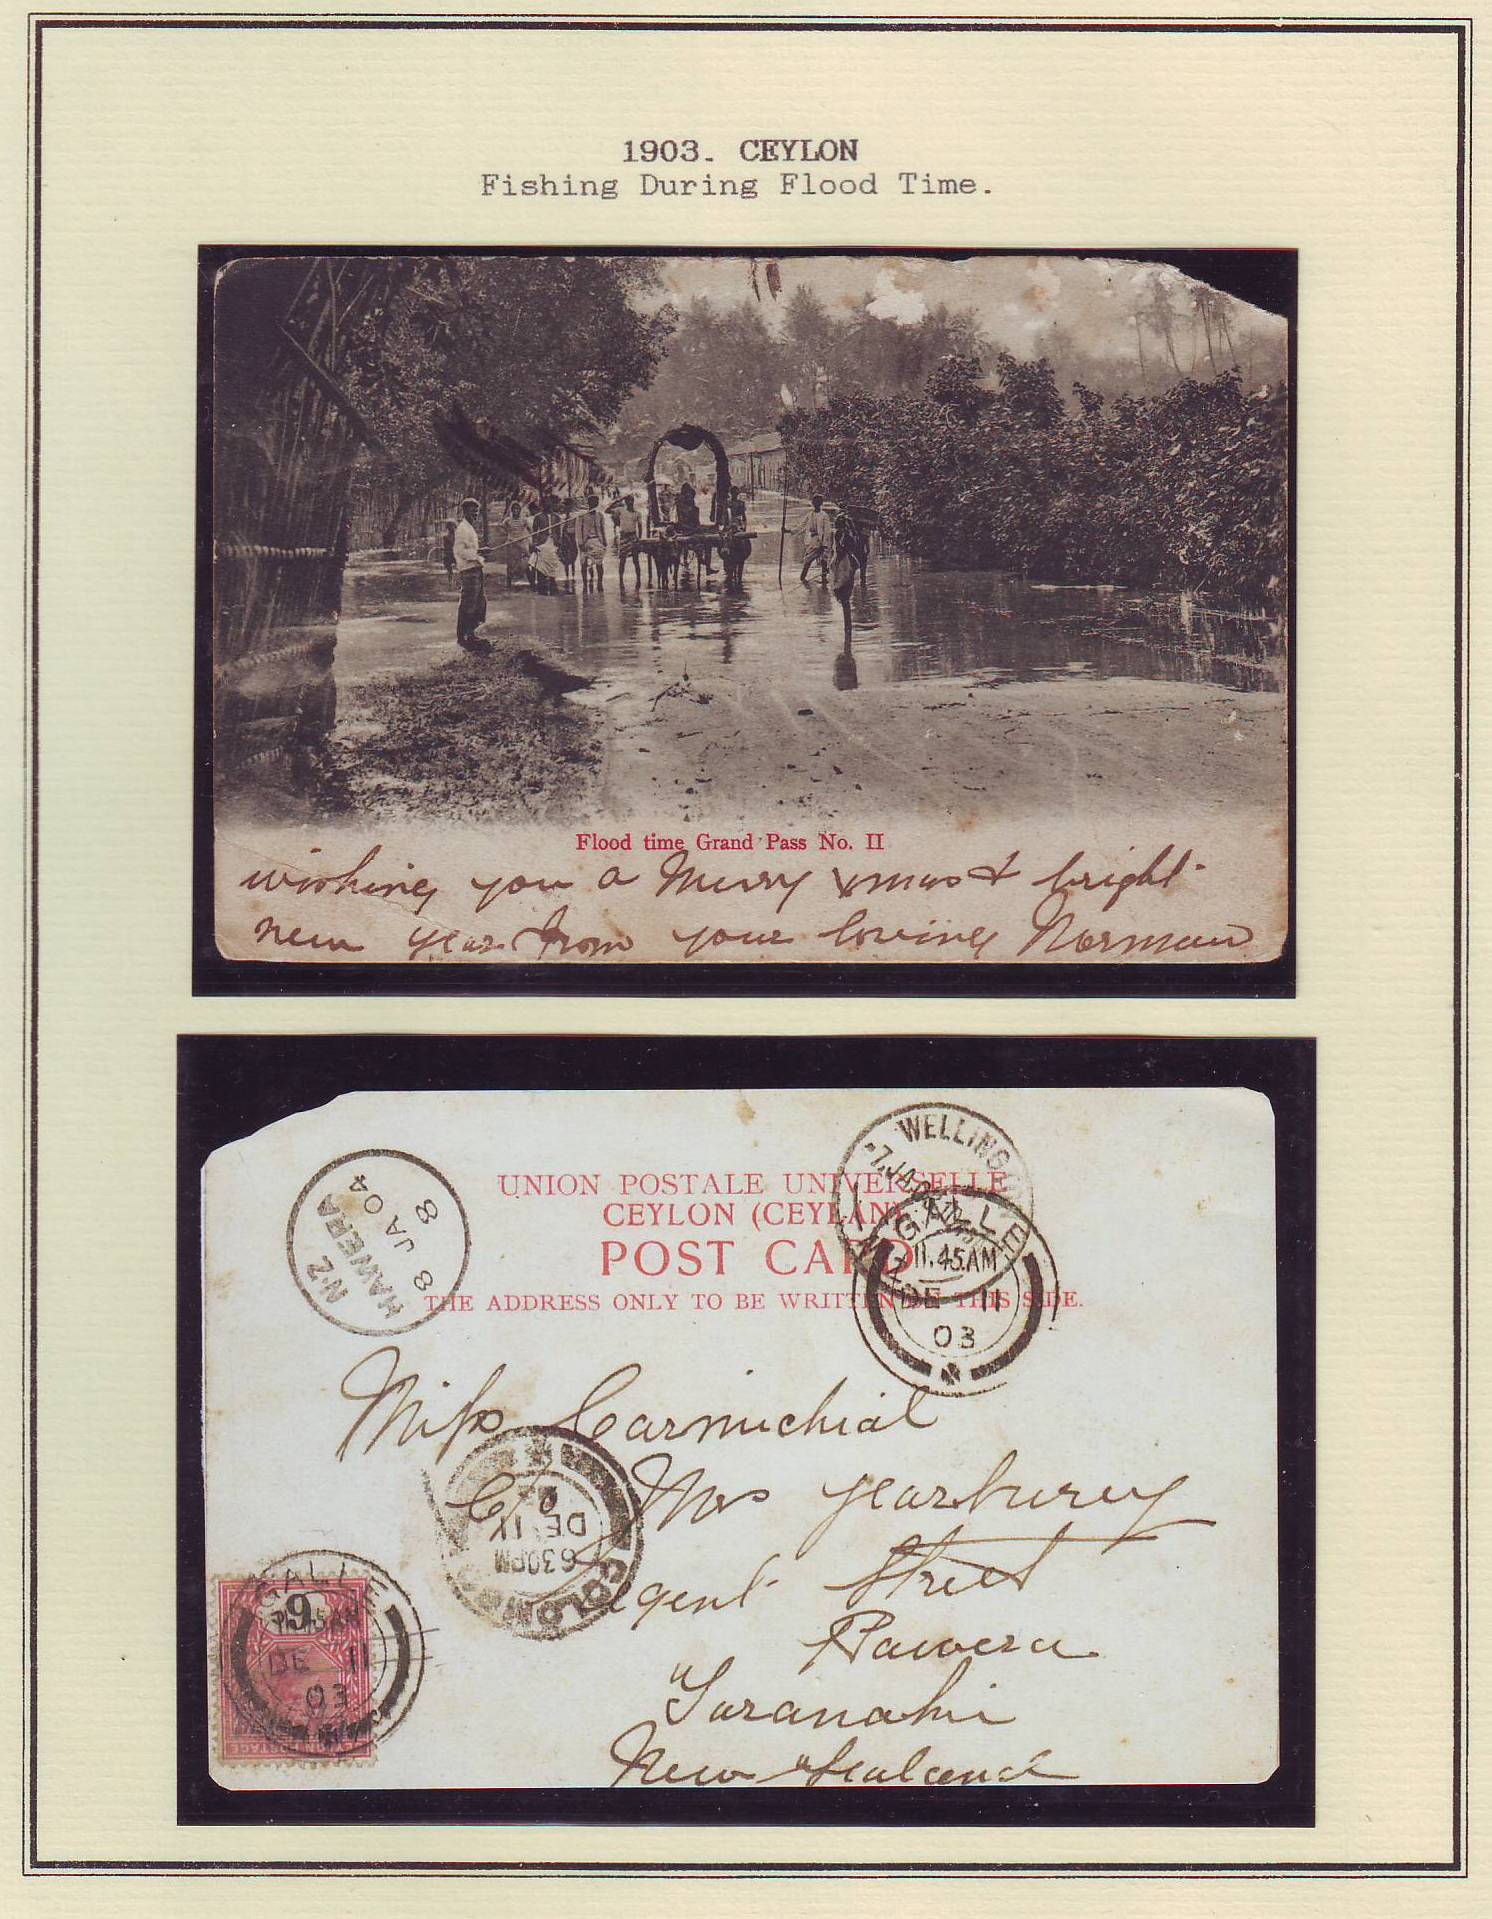 1903. CEYLON
Fishing During Flood Time.
Flood time Grand Pass No. II
wishing you a Merry Xmas & bright
new year from your loving Norman
N·Z
HAWERA
8 JA 04
8
WELLINGTON
7 JA
UNION POSTALE UNIVERSELLE
CEYLON (CEYLAN)
POST CARD
THE ADDRESS ONLY TO BE WRITTEN ON THIS SIDE.
GALLE
11.45AM
DE 11
03
Miss Carmichial
C/o Mrs Yearbury
Regent Street
Hawera
Taranaki
New Zealand
COLOMBO
6 30PM
DE 11
GALLE
DE 11
03
6
CEYLON POSTAGE